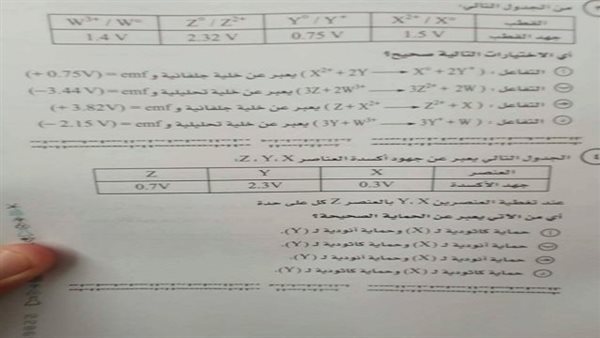 من الجدول التالي:
القطب X²⁺ / X⁰ Y⁰ / Y⁺ Z⁰ / Z²⁺ W³⁺ / W⁰
جهد القطب 1.5 V 0.75 V 2.32 V 1.4 V
أي الاختيارات التالية صحيح؟
أ التفاعل: (X²⁺ + 2Y ⟶ X⁰ + 2Y⁺) يعبر عن خلية جلفانية و emf = (+ 0.75V)
التفاعل: (3Z + 2W³⁺ ⟶ 3Z²⁺ + 2W) يعبر عن خلية تحليلية و emf = (− 3.44 V)
التفاعل: (Z + X²⁺ ⟶ Z²⁺ + X) يعبر عن خلية جلفانية و emf = (+ 3.82V)
د التفاعل: (3Y + W³⁺ ⟶ 3Y⁺ + W) يعبر عن خلية تحليلية و emf = (− 2.15 V)
٤ الجدول التالي يعبر عن جهود أكسدة العناصر Z ، Y ، X:
العنصر X Y Z
جهد الأكسدة 0.3V 2.3V 0.7V
عند تغطية العنصرين Y ، X بالعنصر Z كل على حدة
أي من الآتي يعبر عن الحماية الصحيحة؟
أ حماية كاثودية لـ (X) وحماية أنودية لـ (Y).
حماية أنودية لـ (X) وحماية كاثودية لـ (Y).
حماية أنودية لـ (X) وحماية أنودية لـ (Y).
د حماية كاثودية لـ (X) وحماية كاثودية لـ (Y).